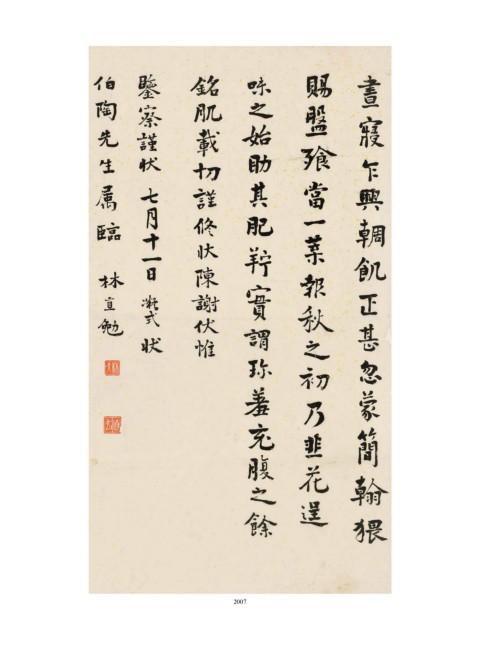 晝寢乍興輖飢正甚忽蒙簡翰猥
賜盤飱當一葉報秋之初乃韭花逞
味之始助其肥羜實謂珍羞充腹之餘
銘肌載切謹修狀陳謝伏惟
鑒察謹狀 七月十一日 凝式狀
伯陶先生屬臨 林宣勉
2007